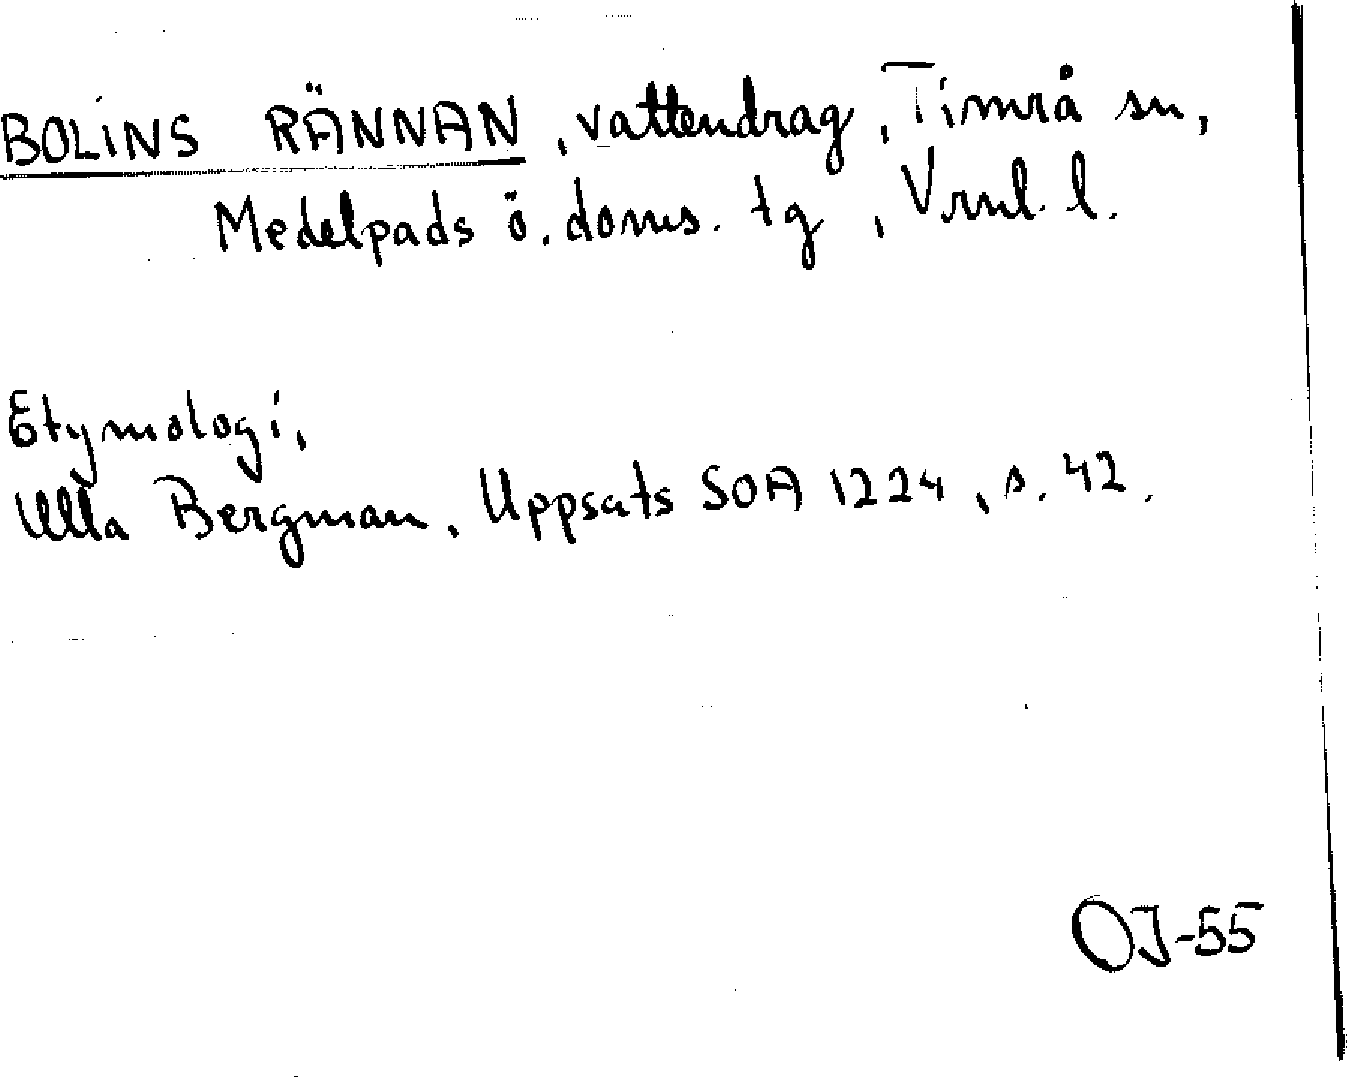 BOLINS RÄNNAN, vattendrag, Timrå sn,
Medelpads ö. doms. tg, Vrnl. l.
Etymologi,
Ulla Bergman, Uppsats SOA 1224, s. 42.
OJ-55